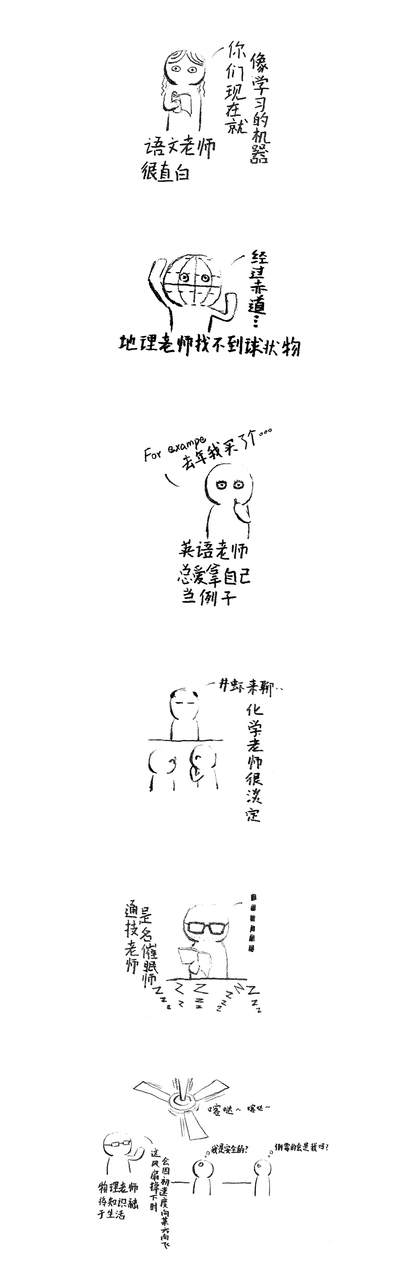 你们现在就
像学习的机器
语文老师
很直白
经过赤道…
地理老师找不到球状物
For exampe
去年我买了个…
英语老师
总爱拿自己
当例子
来聊..
化学老师很淡定
通技老师
是名催眠师
z z z z z z z z
喀哒~ 喀哒~
我是安全的?
倒霉的会是我吗?
这风扇掉下时
会因初速度向某方向飞
物理老师
将知识融
于生活